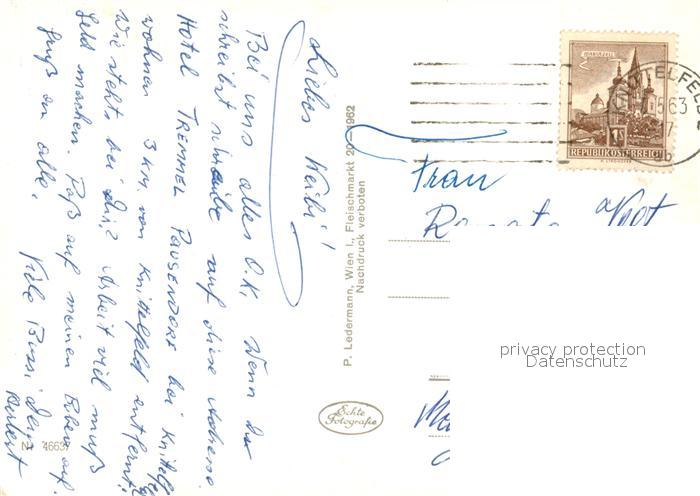 Liebes Weibi!
Bei uns alles O.K. Wenn du
schreibst schreibe auf diese Adresse
Hotel TREMMEL PAUSENDORF bei Knittelfe
wohnen 3 km von Knittelfeld entfernt!
Wie stehts bei dir? Arbeit viel muß
Geld machen. Paß auf meinen Buben auf.
Gruß an alle. Viele Bussi dein
Herbert
P. Ledermann, Wien I., Fleischmarkt 20—1962
Nachdruck verboten
Echte
Fotografie
Nr. 46637
MARIAZELL
1S
REPUBLIK ÖSTERREICH
KNITTELFELD
Frau
Renate Vogt
privacy protection
Datenschutz